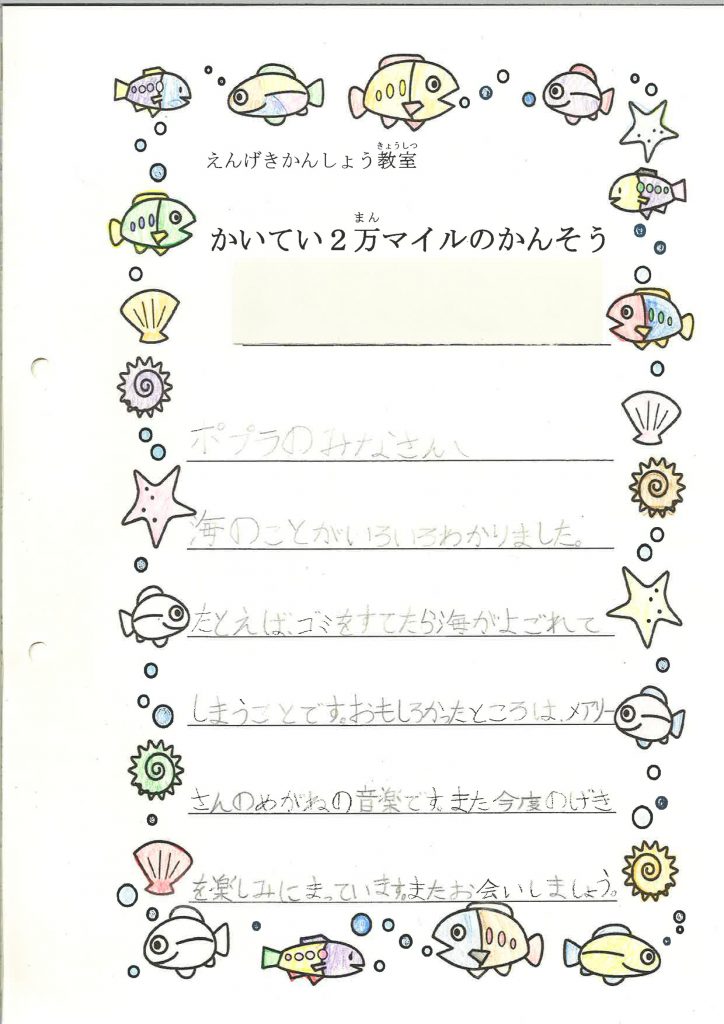 えんげきかんしょう教室
かいてい２万マイルのかんそう
ポプラのみなさん、
海のことがいろいろわかりました。
たとえば、ゴミをすてたら海がよごれて
しまうことです。おもしろかったところは、メアリー
さんのめがねの音楽です。また今度のげき
を楽しみにまっています。またお会いしましょう。